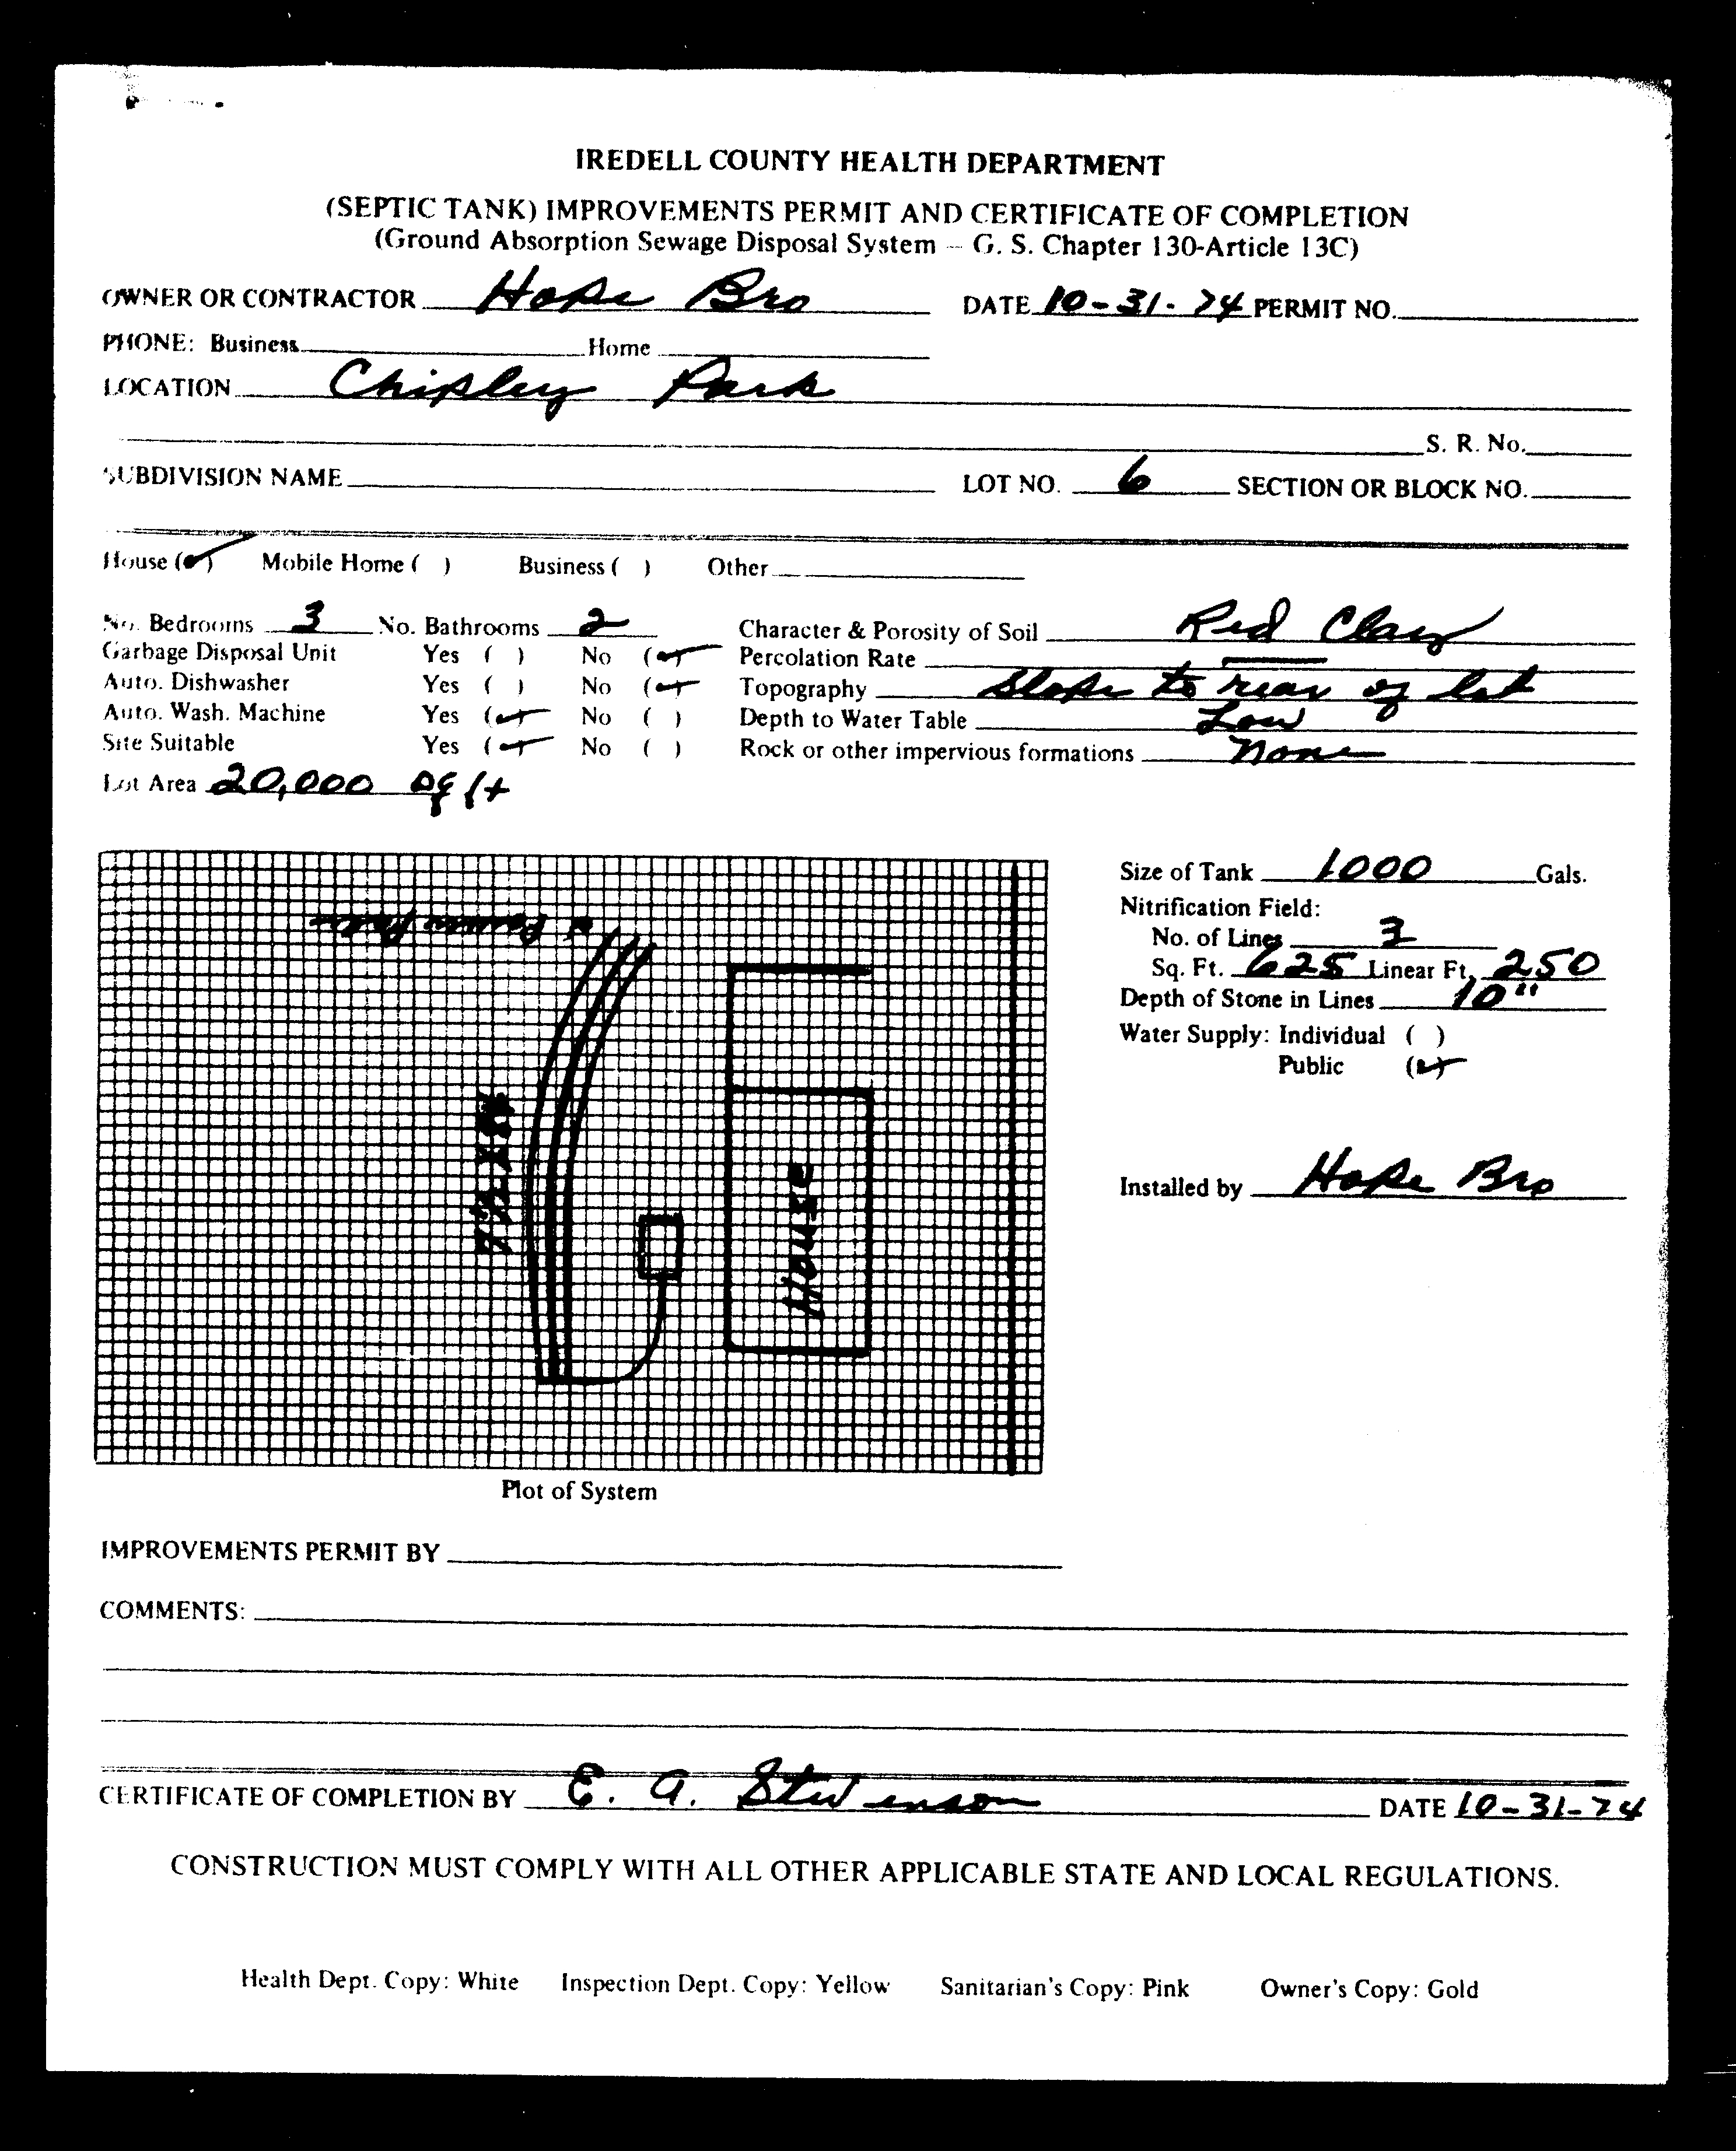 IREDELL COUNTY HEALTH DEPARTMENT
(SEPTIC TANK) IMPROVEMENTS PERMIT AND CERTIFICATE OF COMPLETION
(Ground Absorption Sewage Disposal System — G. S. Chapter 130-Article 13C)
OWNER OR CONTRACTOR Hope Bro DATE 10-31-74 PERMIT NO.
PHONE: Business Home
LOCATION Chipley Park
S. R. No.
SUBDIVISION NAME LOT NO. 6 SECTION OR BLOCK NO.
House (✓) Mobile Home ( ) Business ( ) Other
No. Bedrooms 3 No. Bathrooms 2 Character & Porosity of Soil Red Clay
Garbage Disposal Unit Yes ( ) No (✓) Percolation Rate —
Auto. Dishwasher Yes ( ) No (✓) Topography Slope to rear of lot
Auto. Wash. Machine Yes (✓) No ( ) Depth to Water Table Low
Site Suitable Yes (✓) No ( ) Rock or other impervious formations none
Lot Area 20,000 sq ft
Size of Tank 1000 Gals.
Nitrification Field:
No. of Lines 3
Sq. Ft. 625 Linear Ft. 250
Depth of Stone in Lines 10"
Water Supply: Individual ( )
Public (✓)
Installed by Hope Bro
House
Plot of System
IMPROVEMENTS PERMIT BY
COMMENTS:
CERTIFICATE OF COMPLETION BY E. A. Stevenson DATE 10-31-74
CONSTRUCTION MUST COMPLY WITH ALL OTHER APPLICABLE STATE AND LOCAL REGULATIONS.
Health Dept. Copy: White Inspection Dept. Copy: Yellow Sanitarian's Copy: Pink Owner's Copy: Gold